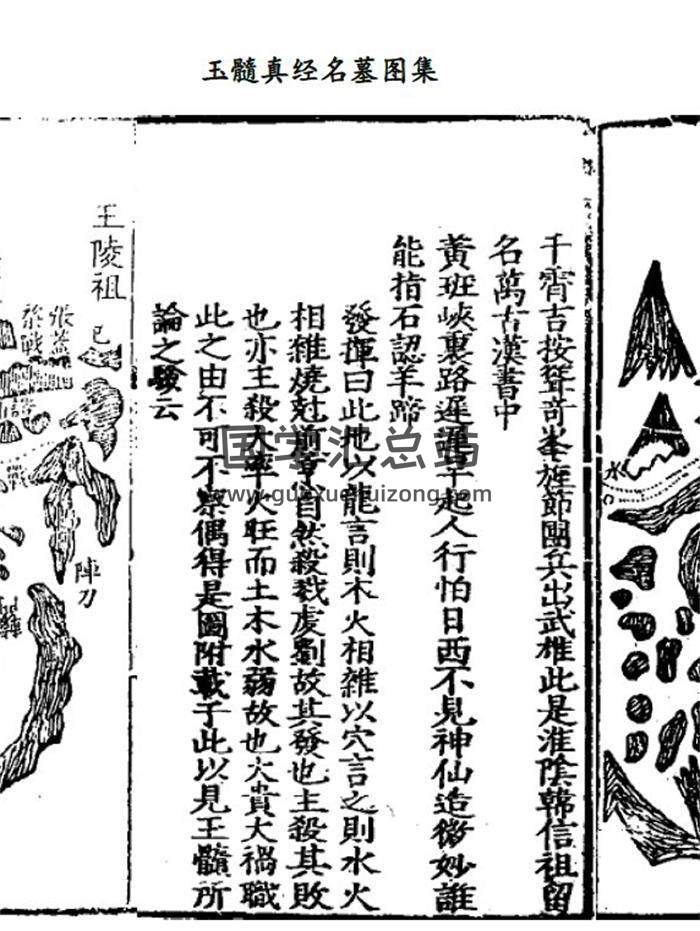 玉髓真经名墓图集
水口
千霄吉按聳竒峯旌節團兵出武椎此是淮陰韓信祖留
名萬古漢書中
黃班峽裏路遲遲早起人行怕日西不見神仙造後妙誰
能指石認羊蹄
發揮曰此地以龍言則木火相雜以穴言之則水火
相雜燒尅前章自然殺戮虔劉故其發也主殺其敗
也亦王殺大率火旺而土木水弱故也大貴大禍職
此之由不可不察偶得是圖附載于此以見王髓所
論之驗云
王陵祖
巳
張蓋
棨戟
陣刀
国学汇总站
www.guoxuehuizong.com